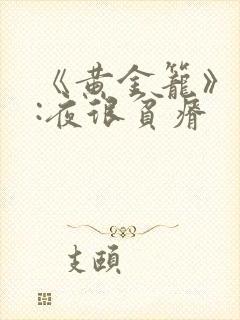 《黄金籠》
:夜很貧瘠
支頤